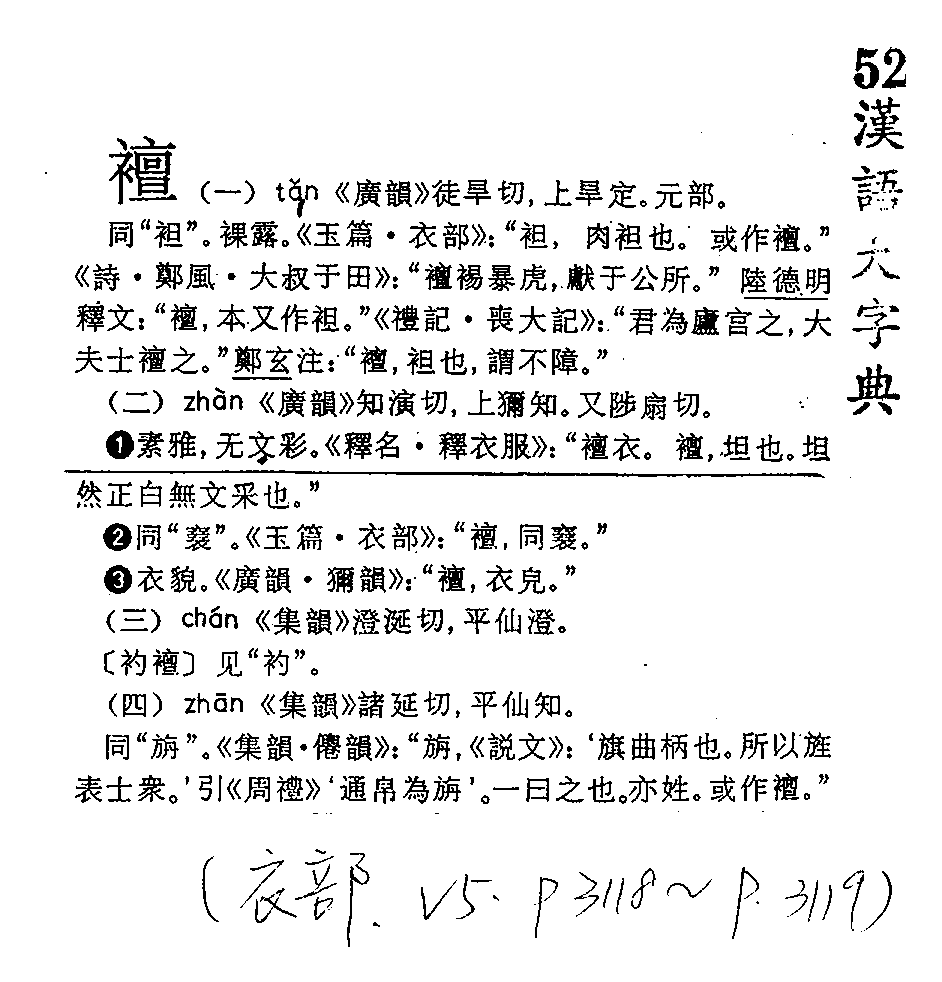 52
漢語大字典
襢 (一) tǎn 《廣韻》徒旱切,上旱定。元部。
同“袒”。裸露。《玉篇・衣部》:“袒, 肉袒也。 或作襢。”
《詩・鄭風・大叔于田》:“襢裼暴虎,獻于公所。” 陸德明
釋文:“襢,本又作袒。”《禮記・喪大記》:“君為廬宮之,大
夫士襢之。”鄭玄注:“襢,袒也,謂不障。”
(二) zhàn 《廣韻》知演切,上獮知。又陟扇切。
❶素雅,无文彩。《釋名・釋衣服》:“襢衣。 襢,坦也。坦
然正白無文采也。”
❷同“襃”。《玉篇・衣部》:“襢,同襃。”
❸衣貌。《廣韻・獮韻》:“襢,衣皃。”
(三) chán 《集韻》澄涎切,平仙澄。
〔袀襢〕见“袀”。
(四) zhān 《集韻》諸延切,平仙知。
同“旃”。《集韻・僊韻》:“旃,《説文》: ‘旗曲柄也。所以旌
表士衆。’引《周禮》‘通帛為旃’。一曰之也。亦姓。或作襢。”
(衣部. V5. P 3118~P. 3119)